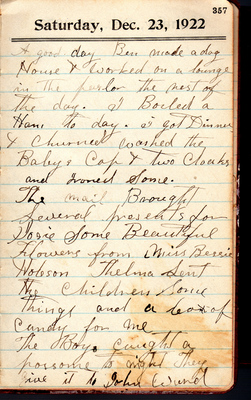 357
Saturday, Dec. 23, 1922
A good day Ben made a dog
House & worked on a lounge
in the parlor the rest of
the day. I Boiled a
Ham to day. I got Dinner
& Churned washed the
Babys Cap & two Cloaks
and Ironed Some.
The mail Brought
Several presents for
Some Beautiful
Flowers from Miss Bessie
Hobson Thelma Sent
the Children Some
things and a box of
Candy for me
The Boys caught a
possome to night They
give it to John